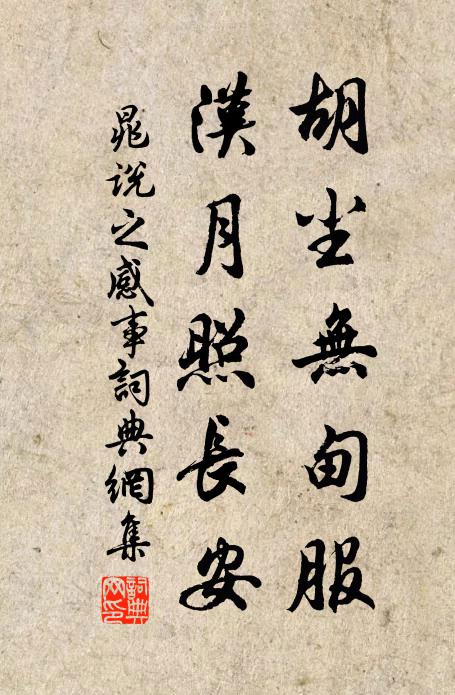 胡尘無甸服
漢月照長安
晁说之感事詞典網集
詞典网印